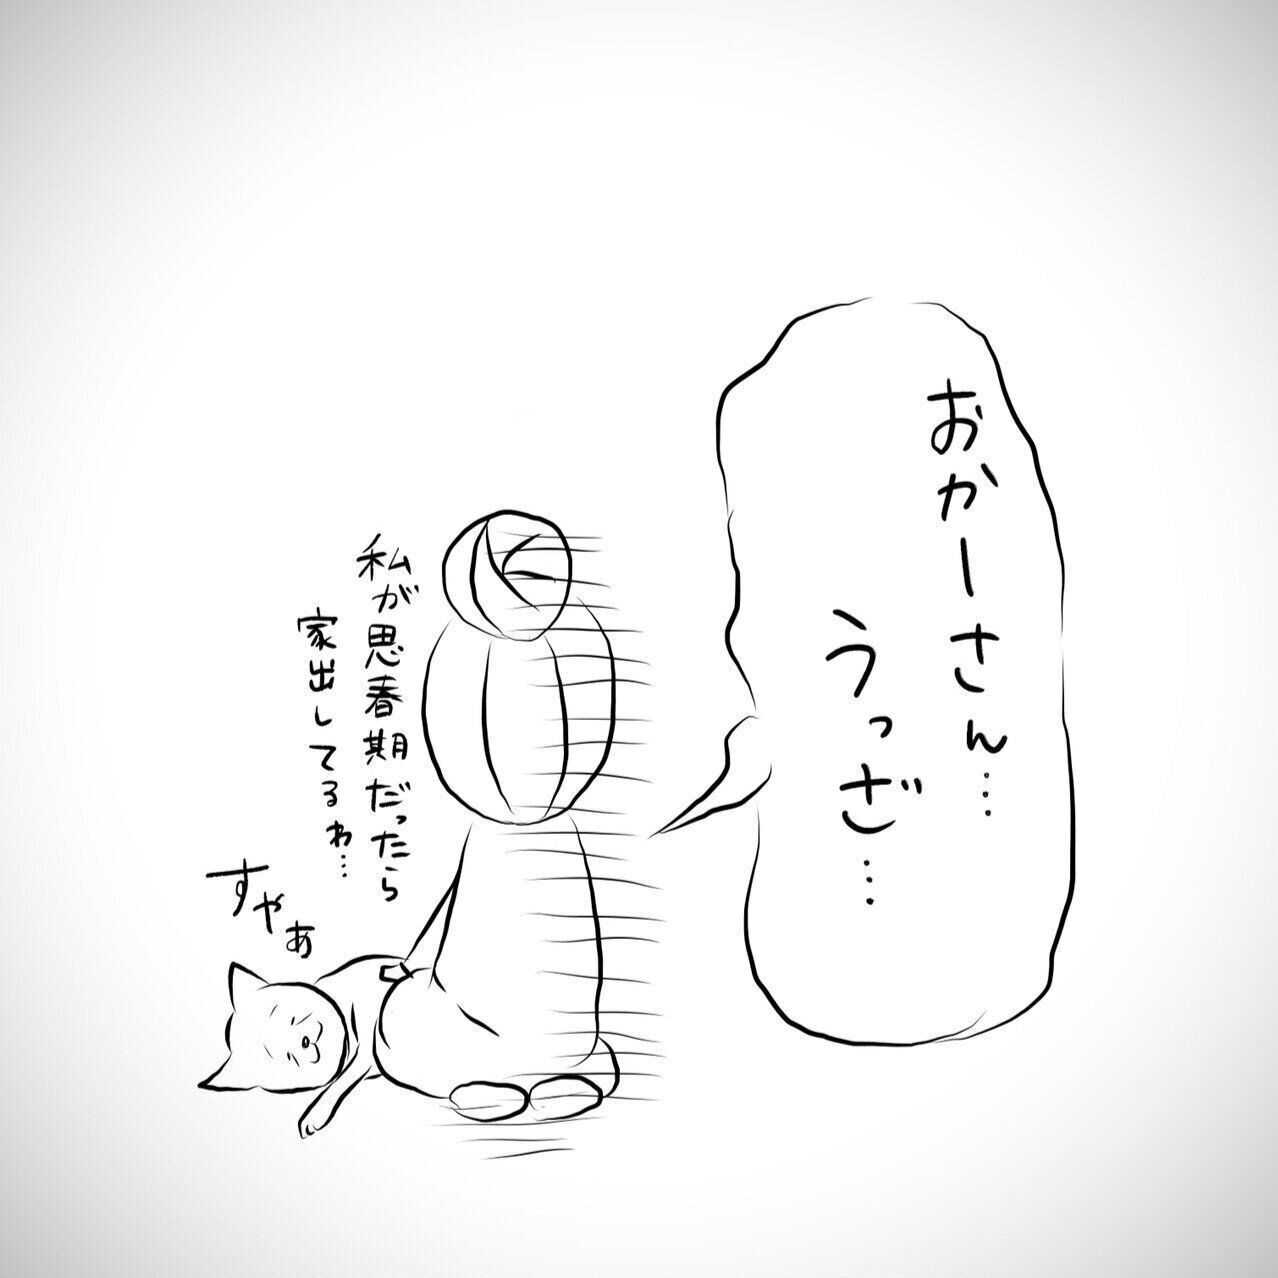 おかーさん…
うっざ…
私が思春期だったら
家出してるわ…
すやぁ